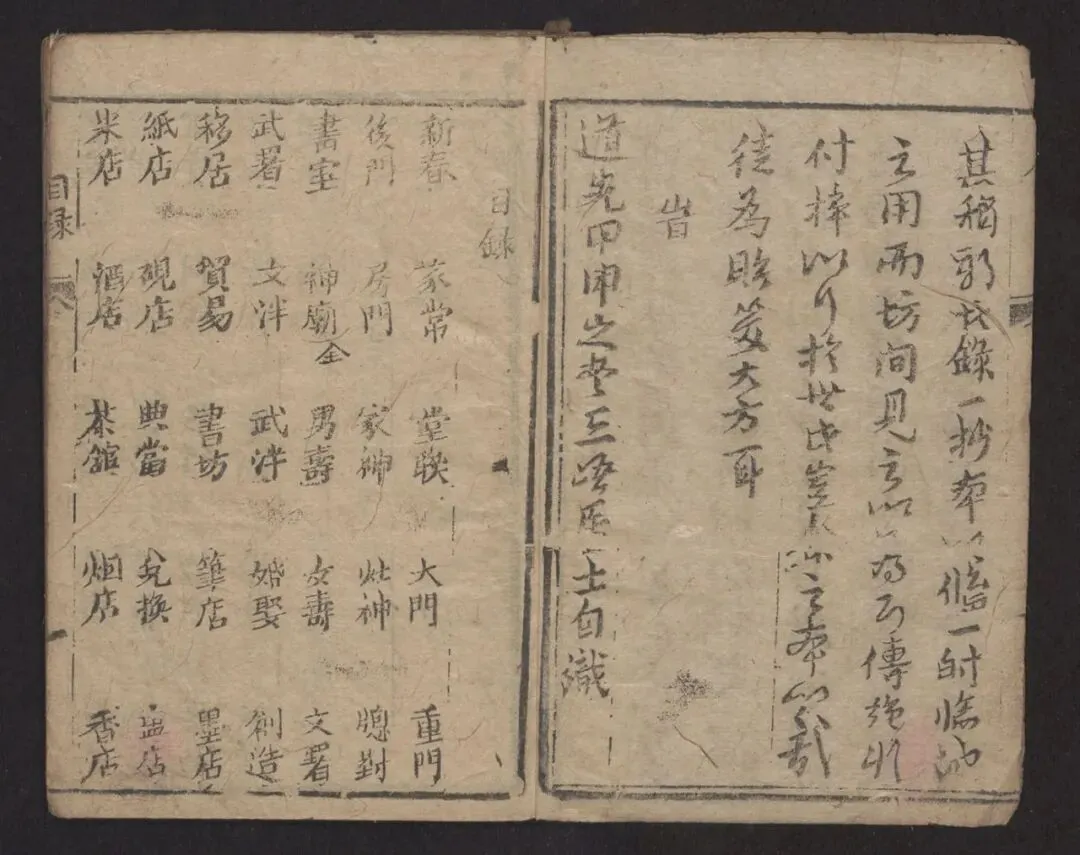 其錄一抄本以偹一時臨池
之用而坊間見之以為可傳
付梓以行於世之本以
徒為貽笑大方耳
旹
道光甲申之冬三居士自識
目錄
新春 家常 堂联 大門 重門
後門 房門 家神 灶神 牕對
書室 神廟全 男壽 女壽 文署
武署 文泮 武泮 婚娶 創造
移居 貿易 書坊 筆店 墨店
紙店 硯店 典當 兌換 盐店
米店 酒店 茶館 烟店 香店
目录